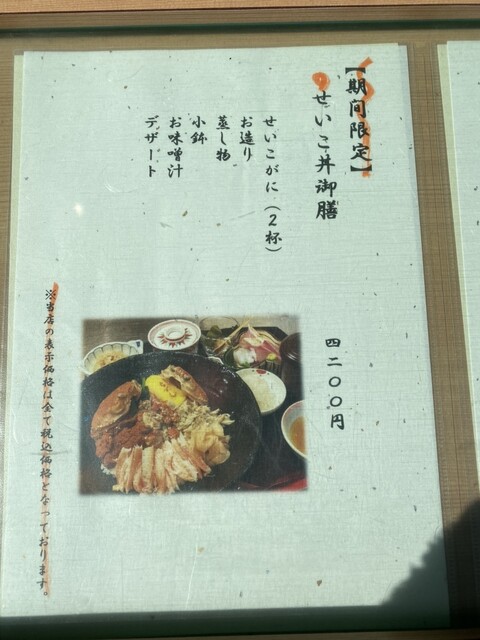 【期間限定】
せいこ丼御膳
せいこがに(2杯)
お造り
蒸し物
小鉢
お味噌汁
デザート
四二〇〇円
※当店の表示価格は全て税込価格となっております。